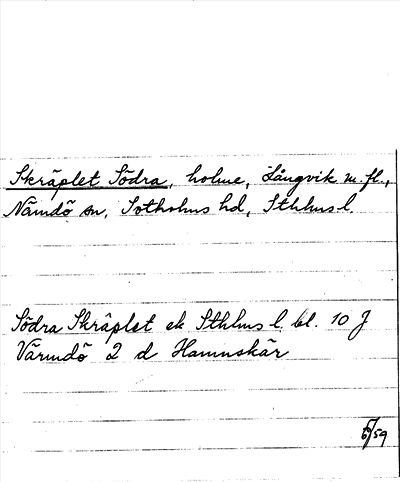 Skräplet Södra, holme, Långvik m.fl.,
Nämdö sn, Sotholms hd, Sthlms l.
Södra Skräplet ek Sthlms l. bl. 10 J
Värmdö 2 d Hamnskär
6/59